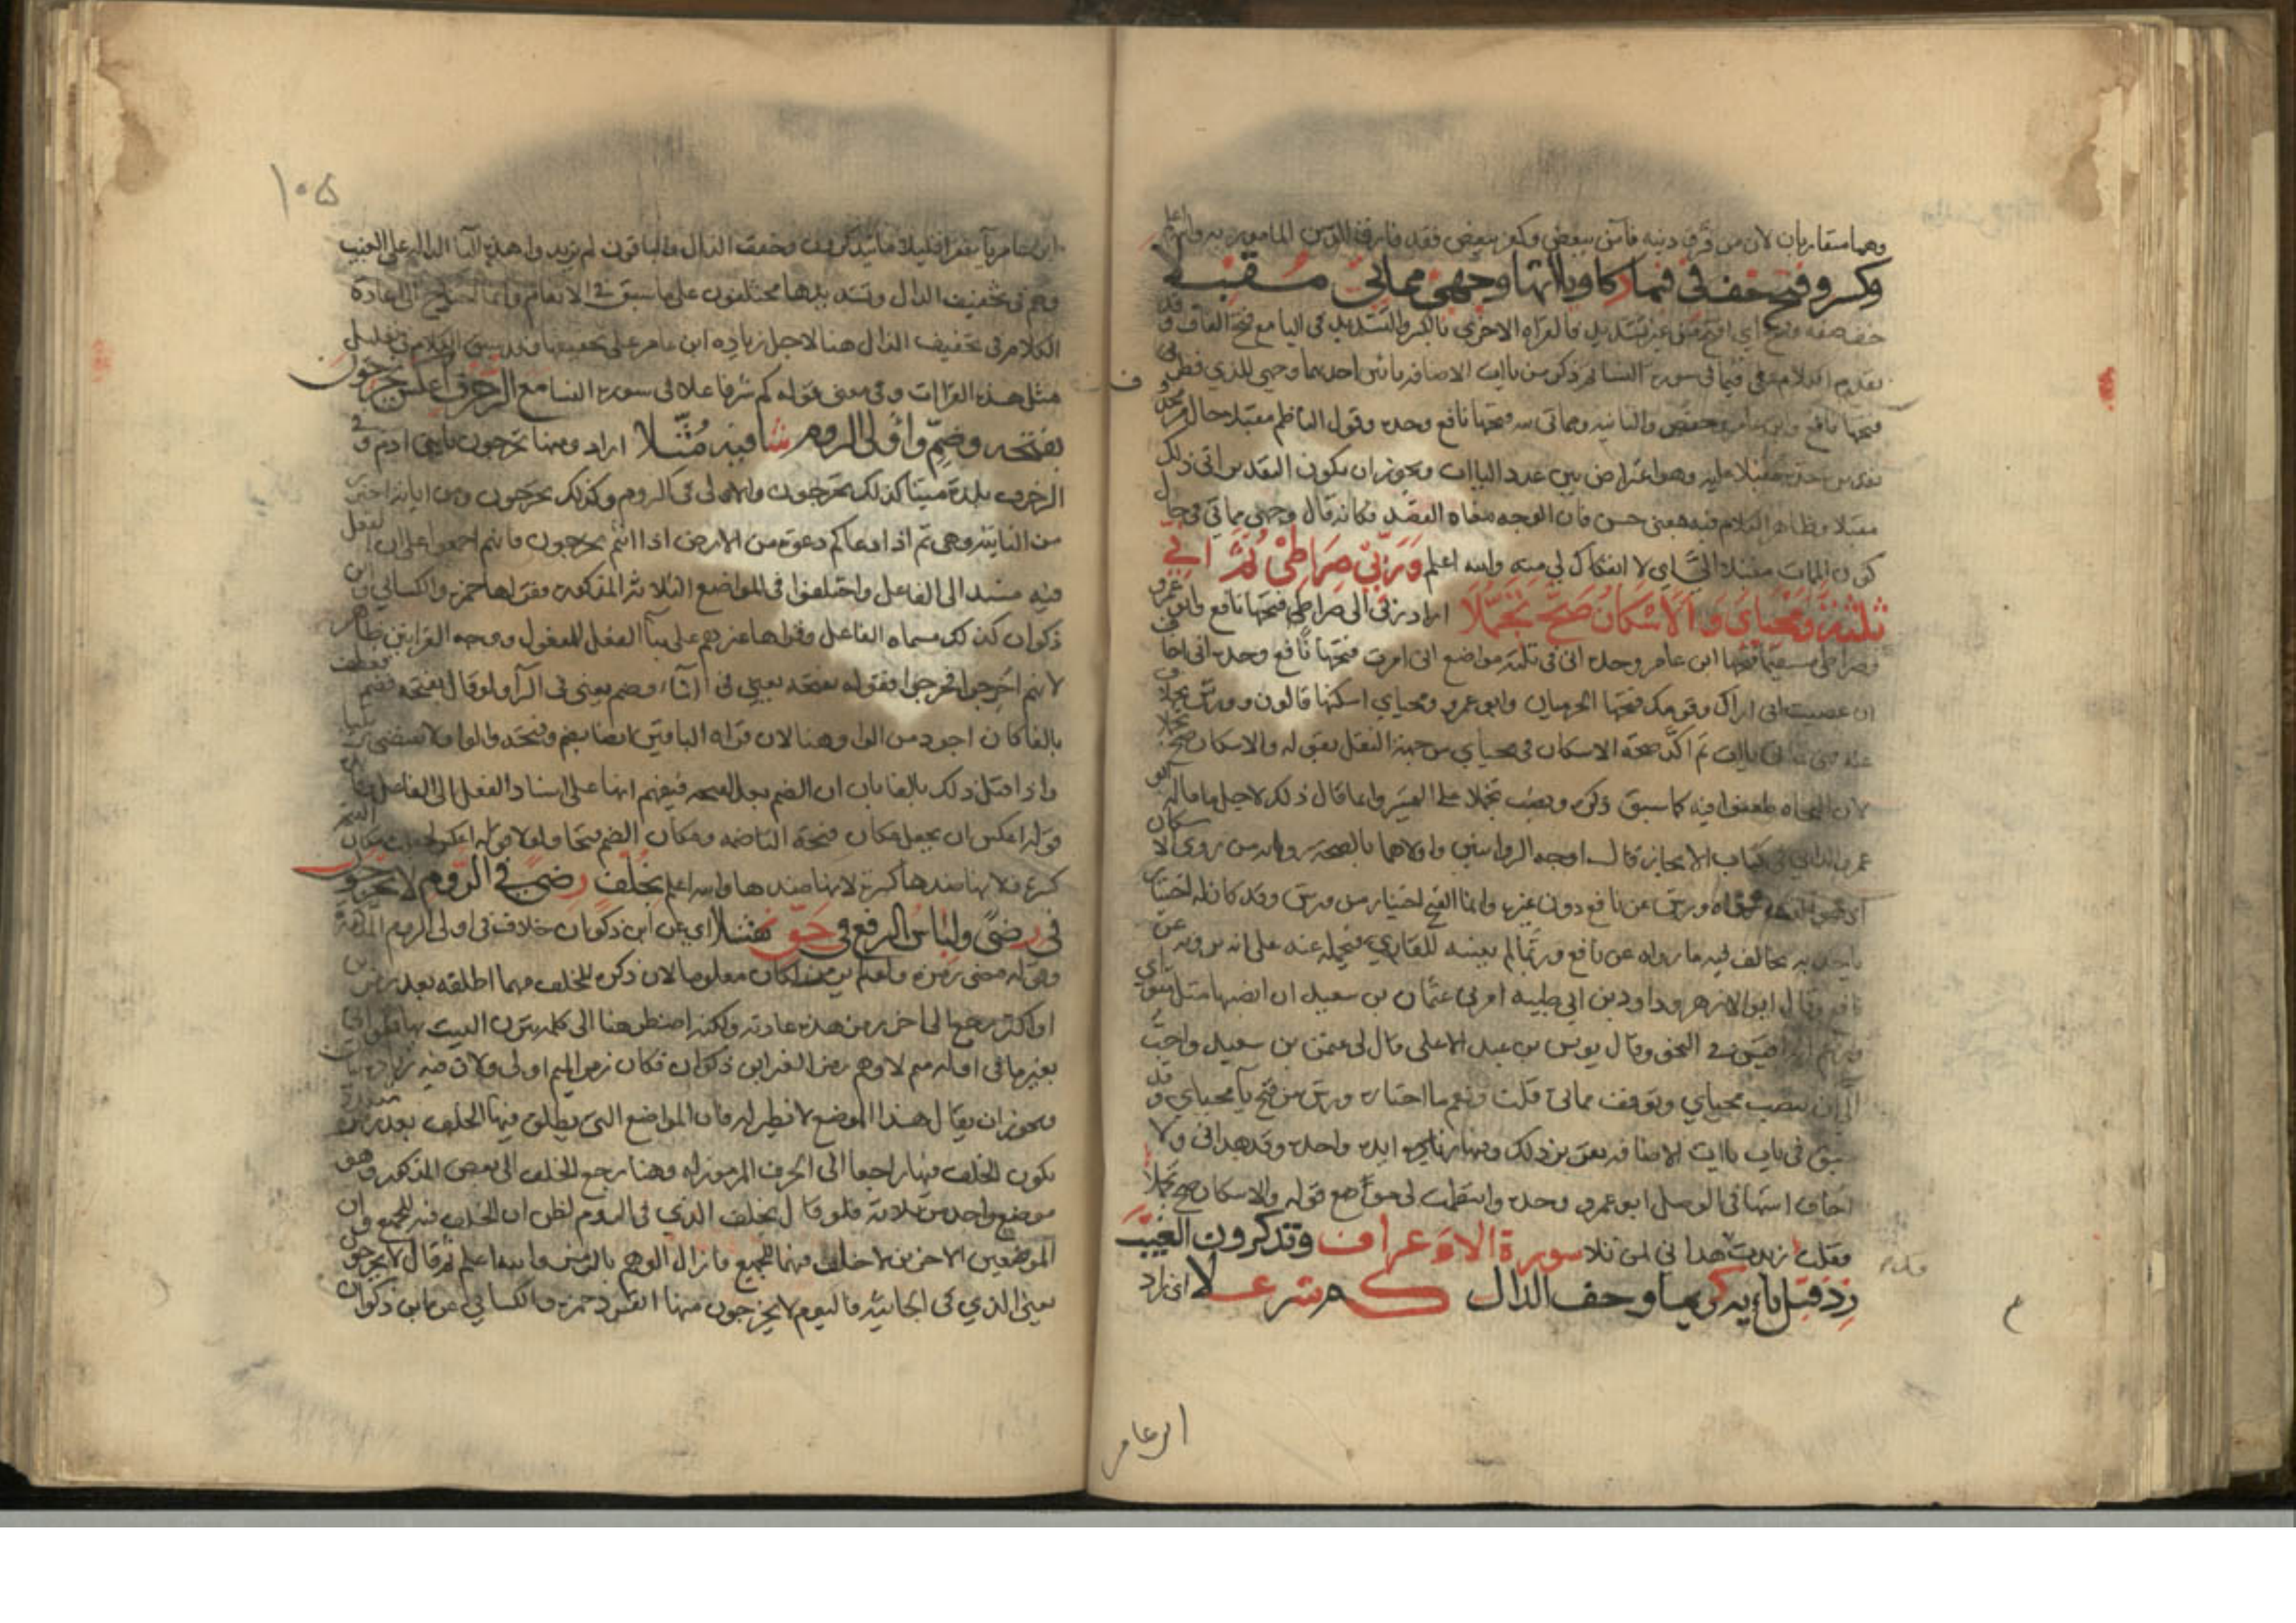 وهما متقاربان لان من فرق دينه فآمن ببعض وكفر ببعض فقد فارق الدين المامور به والله اعلم
وكسر وفتح خف في قيما ذكا وياءاتها وجهي مماتي مقبلا
خف صفة وفتح اي افتح من غير تشديد فالقراة الاخرى بالكسر والتشديد في اليا مع فتح القاف وقد
تقدم الكلام في قيما في سورة النسا ثم ذكر من ياات الاضافة ياين احديهما وجهي للذي فطر
فتحها نافع وابن عامر وحفص والثانية ومماتي لله فتحها نافع وحده وقول الناظم مقبلا حال
مقبلا عليه وهو اعتراض بين عدد الياات ويجوز ان يكون التقدير اتى ذلك
مقبلا وظاهر الكلام فيه معنى حسن فان الوجه معناه القصد فكانه قال وجهي مماتي في حال
كون الممات مقبلا الي اي لا انفكاك لي منه والله اعلم وربي صراطي ثم اني
ثلثة ومحياي والاسكان صح تحملا اراد ربي الى صراط فتحها نافع وابو عمرو
وصراطي مستقيما فتحها ابن عامر وحده اني في ثلثة مواضع اني امرت فتحها نافع وحده اني اخاف
ان عصيت اني اراك وقومك فتحها الحرميان وابو عمرو ومحياي اسكنها قالون وورش بخلاف
عنه ثم اكد صحة الاسكان في محياي من جهة النقل بقوله والاسكان صح تحملا
لان النحاة طعنوا فيه كما سبق ذكره ونصب تحملا على التمييز وانما قال ذلك لاجل ما قاله ابو
عمرو الداني في كتاب الايجاز قال اوجه الروايتين واولاهما بالصحة رواية من روى الاسكان
ورش عن نافع دون غيره وانما الفتح اختيار من ورش وقد كان له اختيار
ياخذ به يخالف فيه ما رواه عن نافع وربما لم يبينه للقاري فيحمله عنه على انه يرويه عن
نافع وقال ابو الازهر وداود بن ابي طيبة امرني عثمان بن سعيد ان انصبها مثل مثواي
في النحو وقال يونس بن عبد الاعلى قال لي عثمن بن سعيد واحب
الي ان تنصب محياي وتوقف مماتي قلت ونعم ما اختاره ورش من فتح يا محياي وقد
سبق في باب ياات الاضافة وفيها زايدة واحدة وقد هداني ولا
اخاف اثبتها في الوصل ابو عمرو وحده وانتظمت لي مع قوله والاسكان صح تحملا
فقلت زيدت هداني لمن تلا سورة الاعراف وتذكرون الغيب
زد قبل تائه كريما وخف الذال كم شرفا علا اي زاد
ابن عامر
١٠٥
ابن عامر يا فقرا قليلا ما يتذكرون وخفف الذال والباقون لم يزيدوا هذه اليا الدالة على الغيب
وهم في تخفيف الذال وتشديدها مختلفون على ما سبق في الانعام وانما احتاج الى اعادة
الكلام في تخفيف الذال هنا لاجل زيادة ابن عامر على تخفيفها وقد سبق الكلام في تعليل
مثل هذه القراات وفي معنى قوله كم شرفا علا في سورة النسا مع الزخرف اعكس تخرجون
بفتحة وضم واولى الروم شافيه مثلا اراد ومنها تخرجون يا بني ادم وفي
الزخرف بلدة ميتا كذلك تخرجون والاولى في الروم وكذلك تخرجون ومن اياته احترز
من الثانية وهي ثم اذا دعاكم دعوة من الارض اذا انتم تخرجون فانهم اجمعوا على ان الفعل
فيه مسند الى الفاعل واختلفوا في المواضع الثلاثة المذكورة فقراها حمزة والكسائي وابن
ذكوان كذلك مسماه الفاعل وقراها غيرهم على بنا الفعل للمفعول ووجه القراتين ظاهر
لانهم اخرجوا فخرجوا فقوله بفتحة يعني في التاء وضم يعني في الرا ولو قال بفتحة فضم
بالفا كان اجود من الواو هنا لان قراة الباقين ايضا بضم وفتحة والواو لا تقتضي ترتيبا
واذا قيل ذلك بالفا بان ان الضم بعد الفتحة فيفهم انها على اسناد الفعل الى الفاعل
قوله اعكس ان يجعل مكان فتحة التا ضمة ومكان الضم فتحا ولولا قوله اعكس لجعلت مكان
كسرة فلا نها ضدها كسرة لانها ضدها والله اعلم بخلف مضى في الروم لا يخرجون
في رضى ولباس الرفع في حق نهشلا اي عن ابن ذكوان خلاف في اولى الروم
لان ذكره للخلف مهما اطلقه بعد رمز
او اكثر رجع الى اخر رمز هذه عادته ولكنه اضطر هنا الى كلمة يتزن البيت بها
بغير ما في اوله ميم لاوهم رمز الغير ابن ذكوان فكان رمز الميم اولى
ويجوز ان يقال هذا الموضع لا نظير له فان المواضع التي يطلق فيها الخلف بعد رموز متعددة
يكون الخلف فيها راجعا الى الحرف المرموز له وهنا رجع الخلف الى بعض المذكور وهو
موضع واحد من ثلاثة فلو قال بخلف الذي في الروم لظن ان الخلف فيه للجميع وان
الموضعين الاخرين لا خلاف فيهما للجميع فازال الوهم بالرمز والله اعلم ثم قال لا يخرجون
يعني الذي في الجاثية فاليوم لا يخرجون منها انفرد حمزة والكسائي عن ابن ذكوان